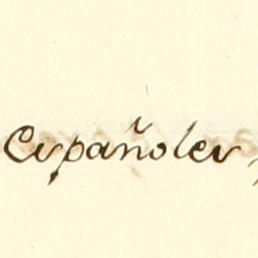 Españoles,